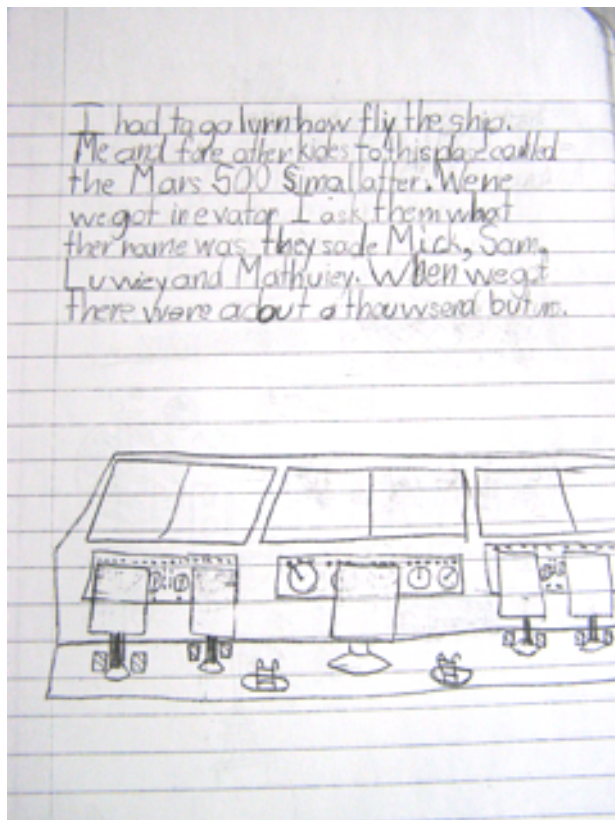 I had to go lurn how fly the ship.
Me and fore other kides to this place caulled
the Mars 500 Simallatter. Wene
we got in evator I ask them what
ther name was they sade Mick, Sam,
Luwiey and Mathuiey. When we got
there were adout a thouwsend butuns.